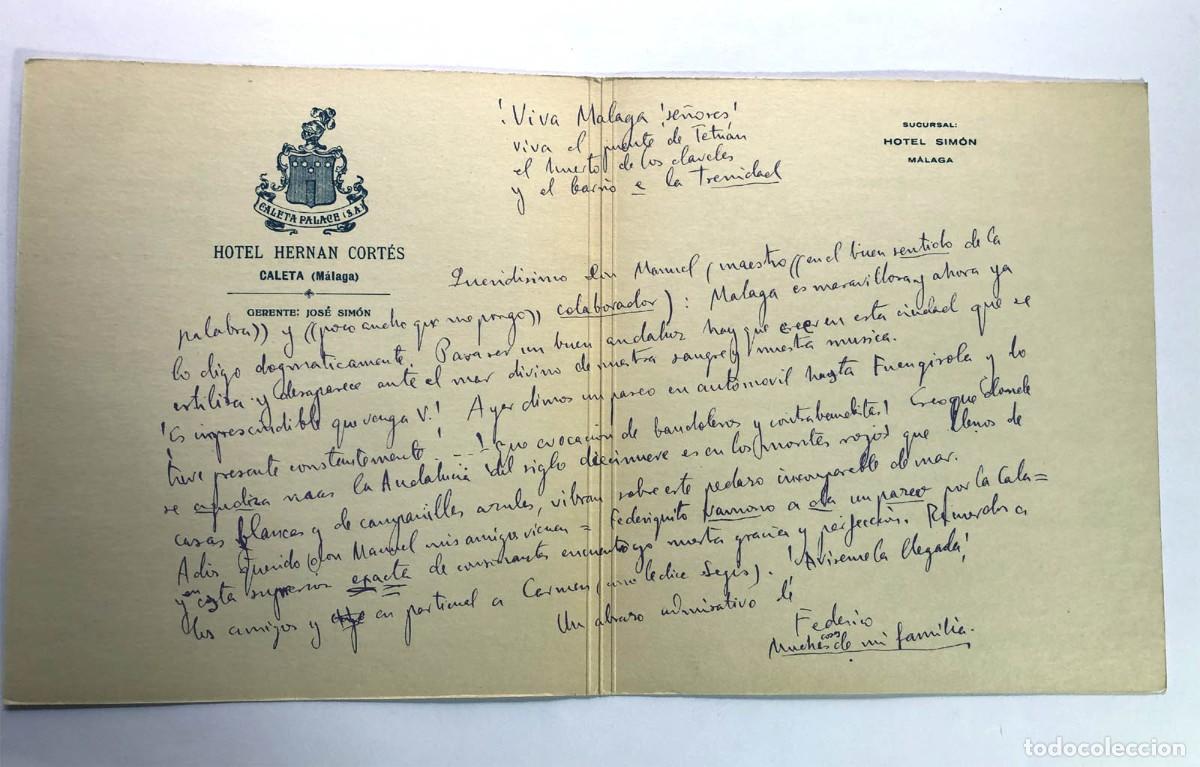 ¡Viva Malaga ¡señores!
viva el puente de Tetuán
el Huerto de los claveles
y el barrio e la Trenidad
SUCURSAL:
HOTEL SIMÓN
MÁLAGA
CALETA PALACE (S.A.)
HOTEL HERNAN CORTÉS
CALETA (Málaga)
GERENTE: JOSÉ SIMÓN
Queridisimo Don Manuel (maestro ((en el buen sentido de la
palabra)) y ((poco ancho que me pongo)) colaborador): Malaga es maravillosa y ahora ya
lo digo dogmaticamente. Para ser un buen andaluz hay que creer en esta ciudad que se
estiliza y desaparece ante el mar divino de nuestra sangre y nuestra musica.
¡Es imprescindible que venga V.! Ayer dimos un paseo en automovil hasta Fuengirola y lo
tuve presente constantemente! ...¡que evocación de bandoleros y contrabandistas! Creo que donde
se agudiza mas la Andalucia del siglo diecinueve es en los montes rojos que llenos de
casas blancas y de campanilles azules, vibran sobre este pedazo incomparable de mar.
Adios Querido Don Manuel mis amigos vienen = Federiquito vamono a da un paseo por la Cala=
y en esta supresion exacta de consonantes encuentro yo nuestra gracia y perfección. Recuerdos a
los amigos y en particuel a Carmen (como le dice Segis). ¡Aviseme la llegada!
Un abraso admirativo de
Federico
Muchas cosas de mi familia.
todocoleccion